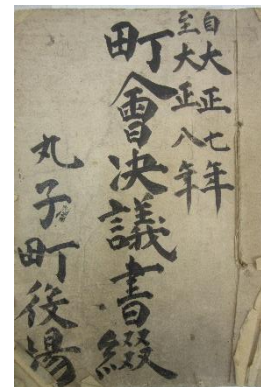 自大正七年
至大正八年
町會決議書綴
丸子町役場